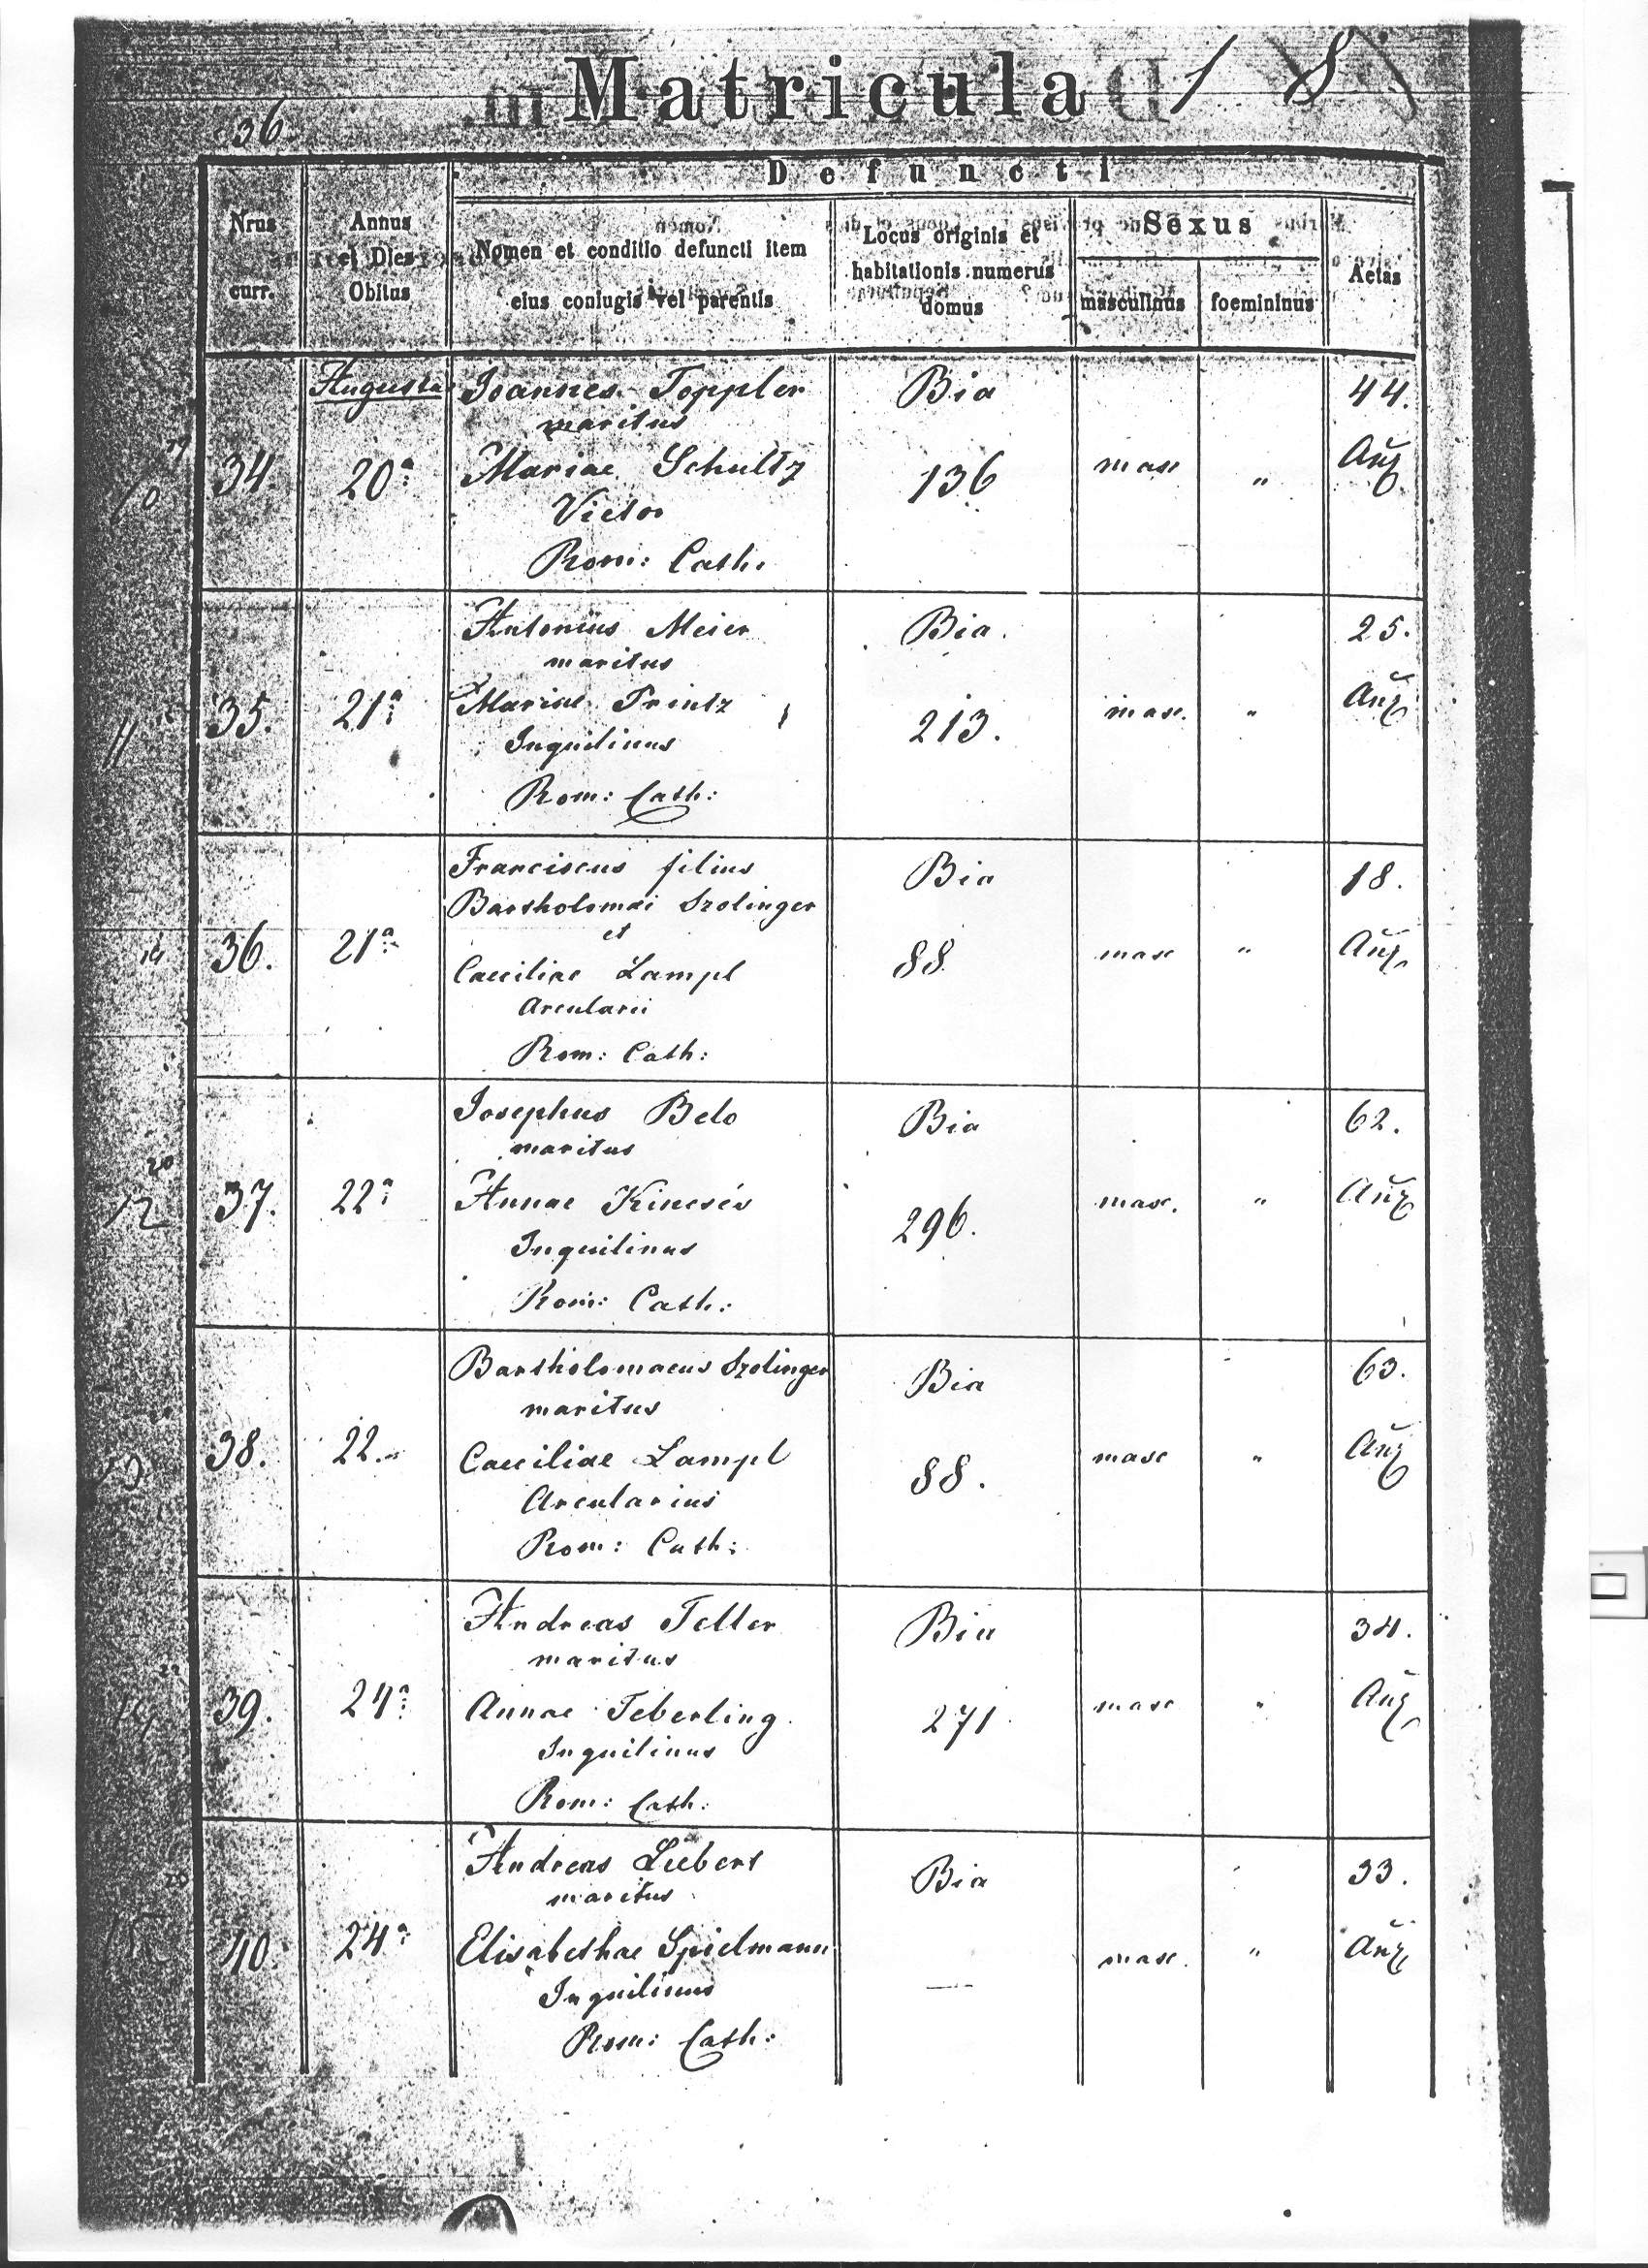 Matricula 18
36.
Defuncti
Nrus curr.
Annus et Dies Obitus
Nomen et conditio defuncti item eius coniugis vel parentis
Locus originis et habitationis numerus domus
Sexus
masculinus
foemininus
Aetas
Augusti
Joannes Toppler Bia 44.
maritus
34. 20a Mariae Schultz 136 masc " Añ
Victor
Rom: Cath:
Antonius Meier Bia. 25.
maritus
11 35. 21a Mariae Printz 213. masc. " Añ
Inquilinus
Rom: Cath:
Franciscus filius Bia 18.
Bartholomäi Szolinger
et
36. 21a Caeciliae Lampl 88. masc " Añ
Arcularii
Rom: Cath:
Josephus Belo Bia 62.
maritus
20
12 37. 22a Annae Kincsés 296. masc. " Añ
Inquilinus
Rom: Cath:
Bartholomaeus Szolinger Bia 63.
maritus
38. 22. Caeciliae Lampl 88. masc " Añ
Arcularius
Rom: Cath:
Andreas Teller Bia 34.
maritus
39. 24a Annae Teberling 271 masc " Añ
Inquilinus
Rom: Cath:
Andreas Liebert Bia 33.
maritus
40. 24a Elisabethae Spielmann — masc. " Añ
Inquilinus
Rom: Cath: